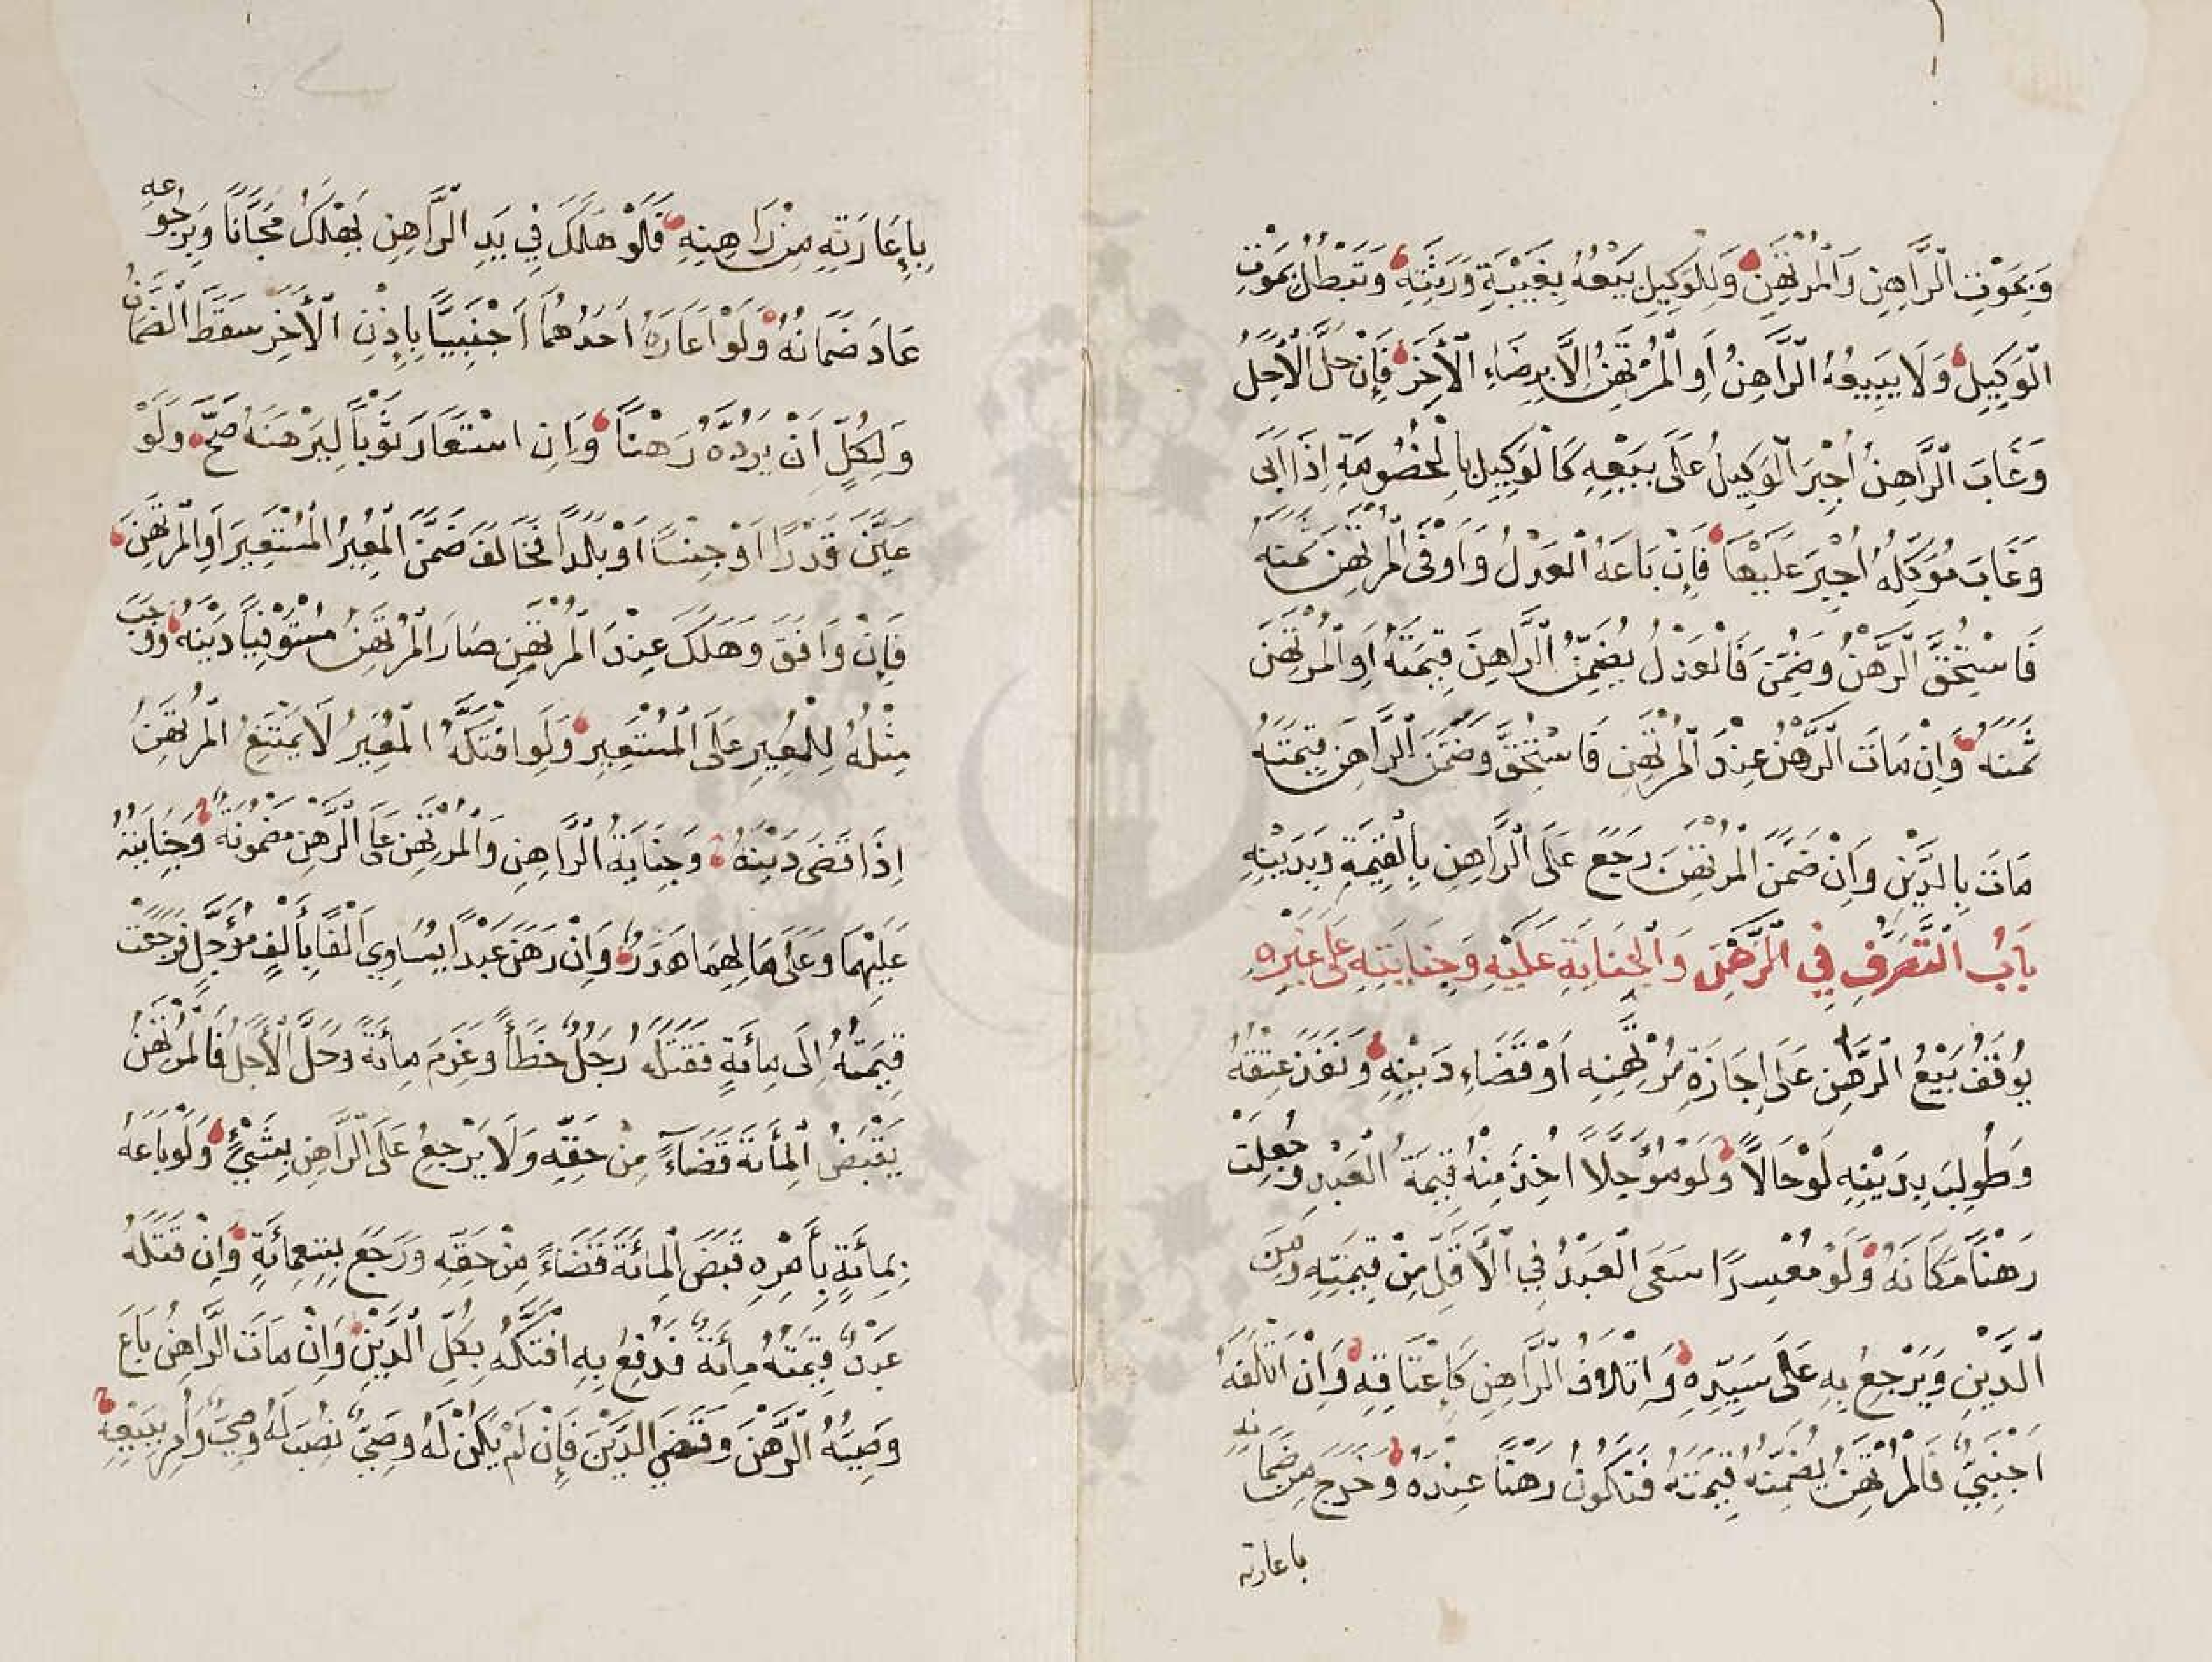 وَبِمَوْتِ الرَّاهِنِ وَالْمُرْتَهِنِ وَلِلْوَكِيلِ بَيْعُهُ بِغَيْبَةِ وَرَثَتِهِ وَتَبْطُلُ بِمَوْتِ
الْوَكِيلِ وَلَا يَبِيعُهُ الرَّاهِنُ أَوِ الْمُرْتَهِنُ إِلَّا بِرِضَاءِ الْآخَرِ فَإِنْ حَلَّ الْأَجَلُ
وَغَابَ الرَّاهِنُ أُجْبِرَ الْوَكِيلُ عَلَى بَيْعِهِ كَالْوَكِيلِ بِالْخُصُومَةِ إِذَا أَبَى
وَغَابَ مُوَكِّلُهُ أُجْبِرَ عَلَيْهَا فَإِنْ بَاعَهُ الْعَدْلُ وَأَوْفَى الْمُرْتَهِنَ ثَمَنَهُ
فَاسْتُحِقَّ الرَّهْنُ وَضَمِنَ فَالْعَدْلُ يُضَمِّنُ الرَّاهِنَ قِيمَتَهُ أَوِ الْمُرْتَهِنَ
ثَمَنَهُ وَإِنْ مَاتَ الرَّهْنُ عِنْدَ الْمُرْتَهِنِ فَاسْتُحِقَّ وَضَمِنَ الرَّاهِنُ قِيمَتَهُ
مَاتَ بِالدَّيْنِ وَإِنْ ضَمَّنَ الْمُرْتَهِنَ رَجَعَ عَلَى الرَّاهِنِ بِالْقِيمَةِ وَبِدَيْنِهِ
بَابُ التَّصَرُّفِ فِي الرَّهْنِ وَالْجِنَايَةِ عَلَيْهِ وَجِنَايَتِهِ عَلَى غَيْرِهِ
يُوقَفُ بَيْعُ الرَّاهِنِ عَلَى إِجَازَةِ مُرْتَهِنِهِ أَوْ قَضَاءِ دَيْنِهِ وَنَفَذَ عِتْقُهُ
وَطُولِبَ بِدَيْنِهِ لَوْ حَالًّا وَلَوْ مُؤَجَّلًا أُخِذَ مِنْهُ قِيمَةُ الْعَبْدِ وَجُعِلَتْ
رَهْنًا مَكَانَهُ وَلَوْ مُعْسِرًا سَعَى الْعَبْدُ فِي الْأَقَلِّ مِنْ قِيمَتِهِ وَمِنَ
الدَّيْنِ وَيَرْجِعُ بِهِ عَلَى سَيِّدِهِ وَإِتْلَافُ الرَّاهِنِ كَإِعْتَاقِهِ وَإِنْ أَتْلَفَهُ
أَجْنَبِيٌّ فَالْمُرْتَهِنُ يُضَمِّنُهُ قِيمَتَهُ فَتَكُونُ رَهْنًا عِنْدَهُ وَخَرَجَ مِنْ ضَمَانِهِ
باعارته
بِإِعَارَتِهِ مِنْ رَاهِنِهِ فَلَوْ هَلَكَ فِي يَدِ الرَّاهِنِ يَهْلِكُ مَجَّانًا وَبِرُجُوعِهِ
عَادَ ضَمَانُهُ وَلَوْ أَعَارَهُ أَحَدُهُمَا أَجْنَبِيًّا بِإِذْنِ الْآخَرِ سَقَطَ الضَّمَانُ
وَلِكُلٍّ أَنْ يَرُدَّهُ رَهْنًا وَإِنِ اسْتَعَارَ ثَوْبًا لِيَرْهَنَهُ صَحَّ وَلَوْ
عَيَّنَ قَدْرًا أَوْ جِنْسًا أَوْ بَلَدًا فَخَالَفَ ضَمَّنَ الْمُعِيرُ الْمُسْتَعِيرَ أَوِ الْمُرْتَهِنَ
فَإِنْ وَافَقَ وَهَلَكَ عِنْدَ الْمُرْتَهِنِ صَارَ الْمُرْتَهِنُ مُسْتَوْفِيًا دَيْنَهُ وَوَجَبَ
مِثْلُهُ لِلْمُعِيرِ عَلَى الْمُسْتَعِيرِ وَلَوِ افْتَكَّهُ الْمُعِيرُ لَا يَمْتَنِعُ الْمُرْتَهِنُ
إِذَا قَضَى دَيْنَهُ وَجِنَايَةُ الرَّاهِنِ وَالْمُرْتَهِنِ عَلَى الرَّهْنِ مَضْمُونَةٌ وَجِنَايَتُهُ
عَلَيْهِمَا وَعَلَى مَالِهِمَا هَدَرٌ وَإِنْ رَهَنَ عَبْدًا يُسَاوِي أَلْفًا بِأَلْفٍ مُؤَجَّلٍ فَرَجَعَتْ
قِيمَتُهُ إِلَى مِائَةٍ فَقَتَلَهُ رَجُلٌ خَطَأً وَغَرِمَ مِائَةً وَحَلَّ الْأَجَلُ فَالْمُرْتَهِنُ
يَقْبِضُ الْمِائَةَ قَضَاءً مِنْ حَقِّهِ وَلَا يَرْجِعُ عَلَى الرَّاهِنِ بِشَيْءٍ وَلَوْ بَاعَهُ
بِمِائَةٍ بِأَمْرِهِ قَبَضَ الْمِائَةَ قَضَاءً مِنْ حَقِّهِ وَرَجَعَ بِتِسْعِمِائَةٍ وَإِنْ قَتَلَهُ
عَبْدٌ قِيمَتُهُ مِائَةٌ فَدُفِعَ بِهِ افْتَكَّهُ بِكُلِّ الدَّيْنِ وَإِنْ مَاتَ الرَّاهِنُ بَاعَ
وَصِيُّهُ الرَّهْنَ وَقَضَى الدَّيْنَ فَإِنْ لَمْ يَكُنْ لَهُ وَصِيٌّ نُصِبَ لَهُ وَصِيٌّ وَأُمِرَ بِبَيْعِهِ